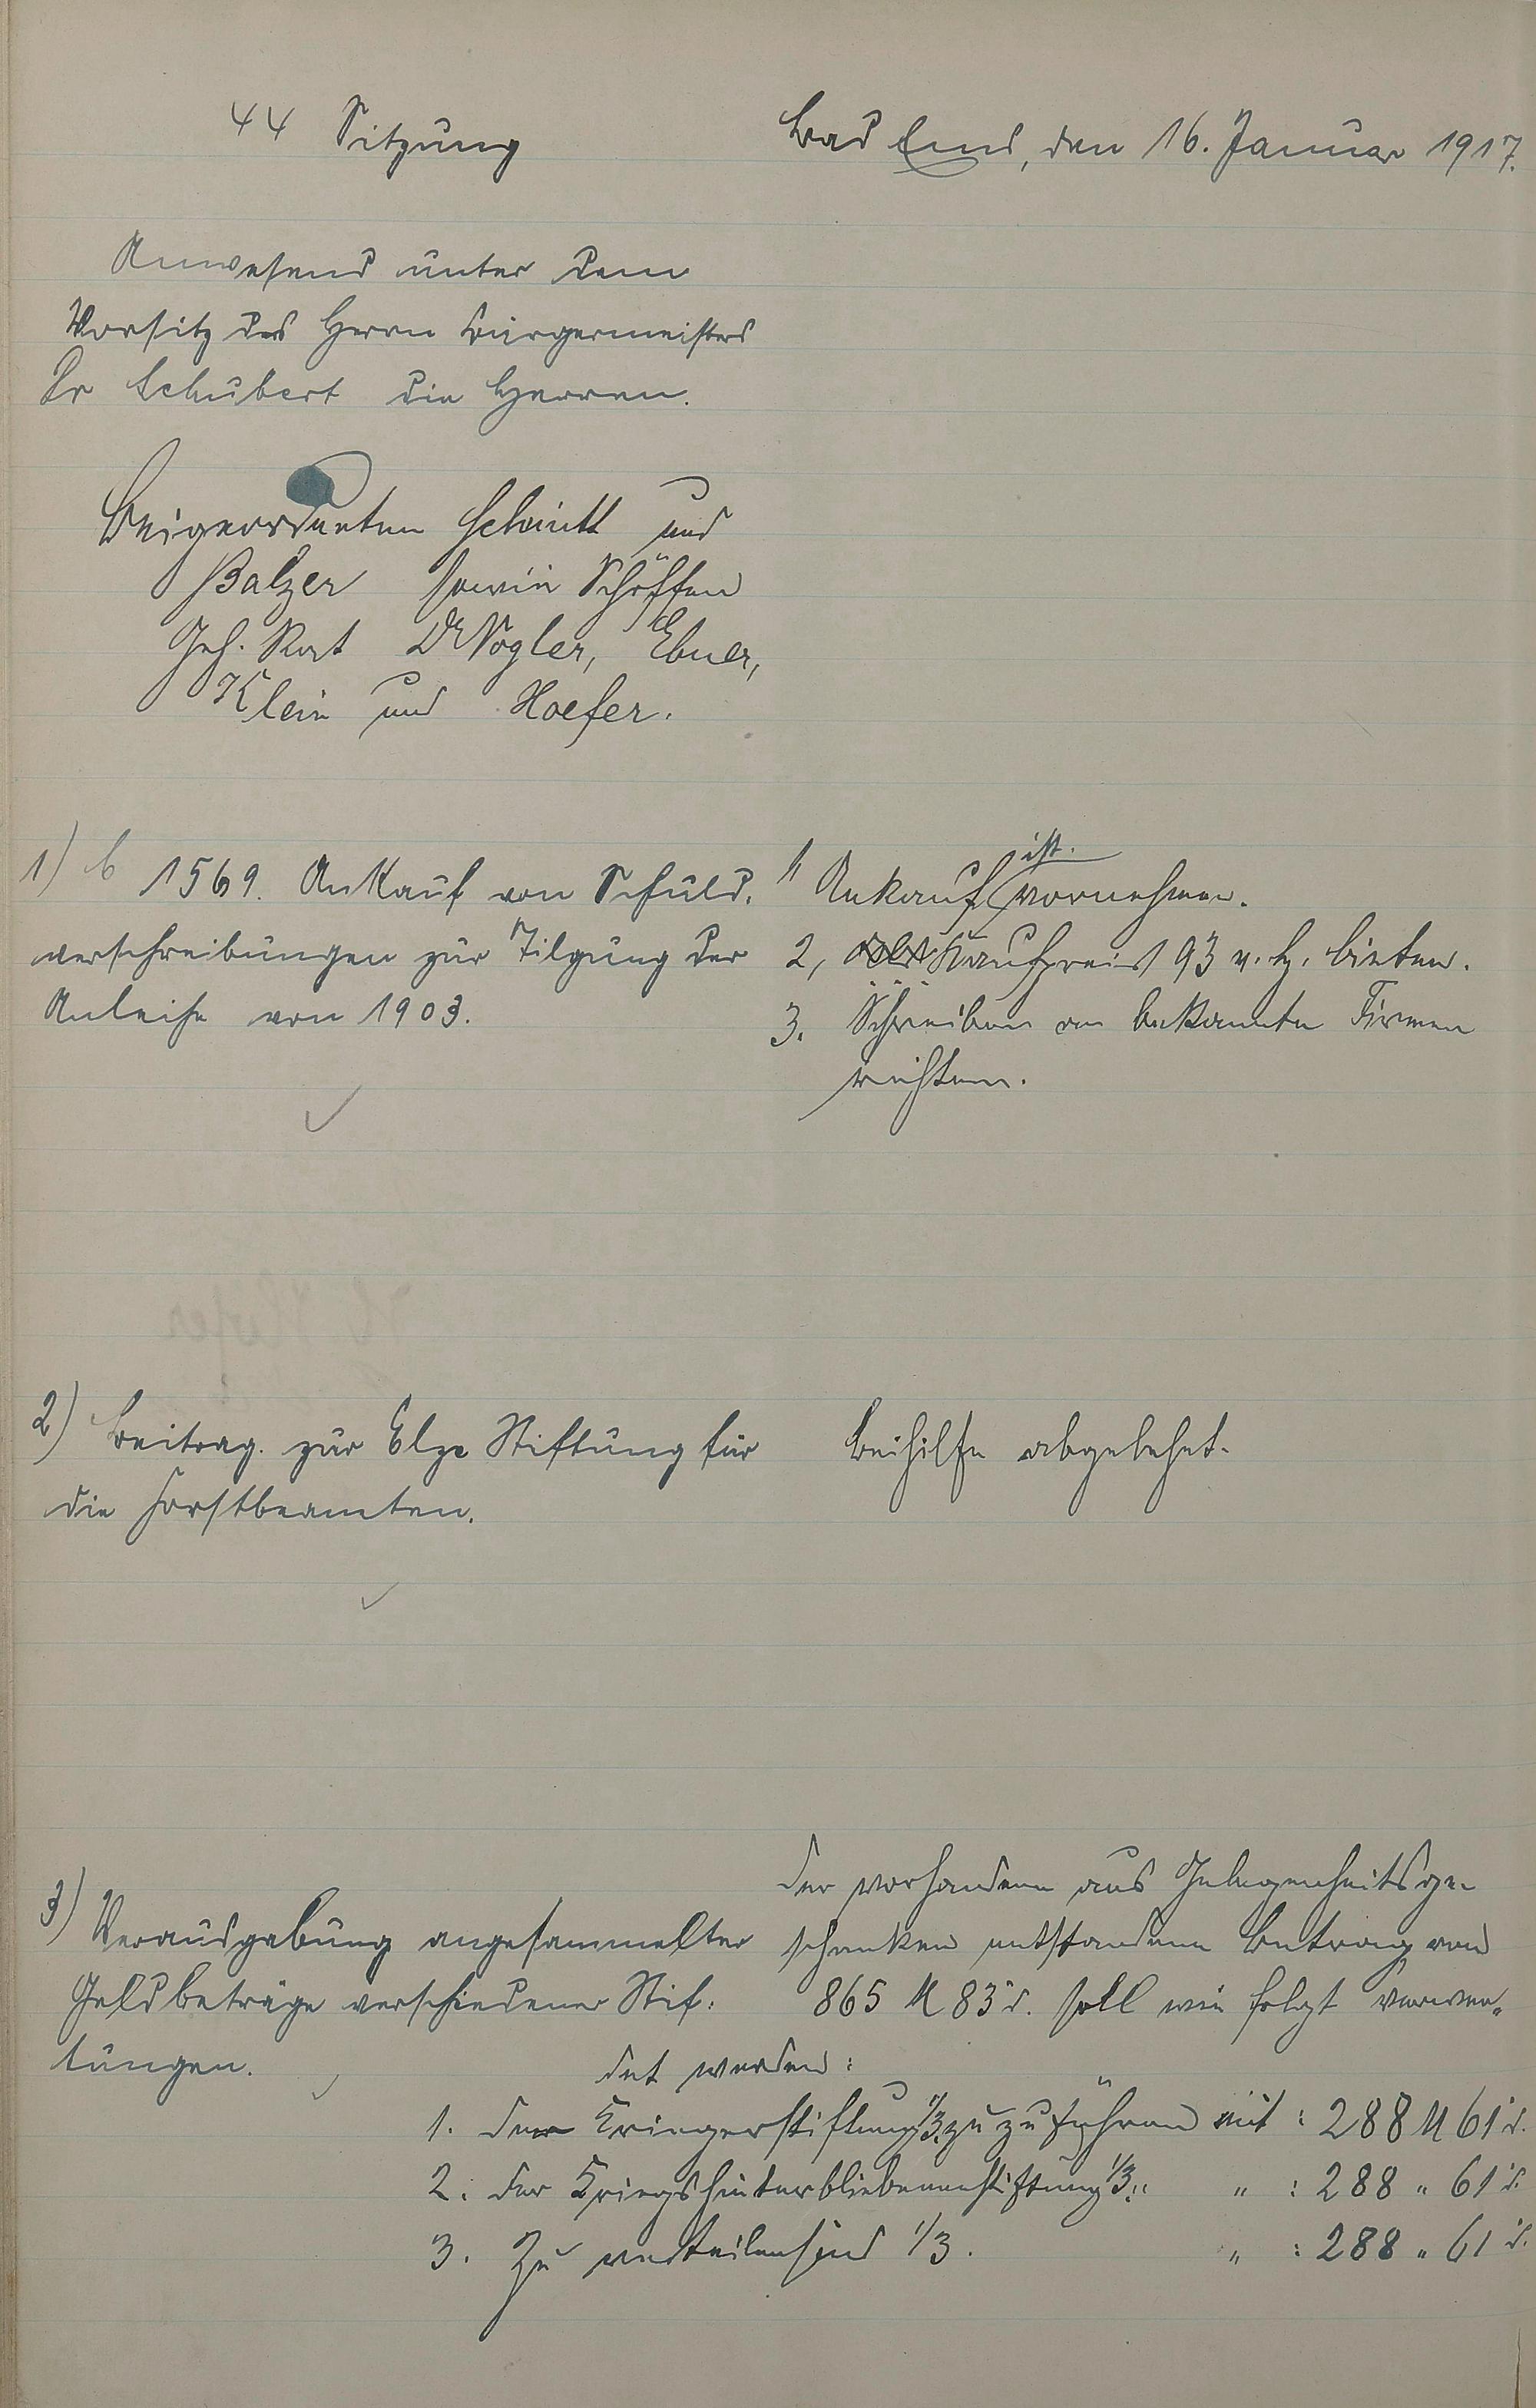 44 Sitzung
Bad Ems, den 16. Januar 1917.
Anwesend unter dem
Vorsitz des Herrn Bürgermeisters
Dr Schubert die Herren.
Beigeordneten Schmitt und
Balzer sowie Schöffen
Geh. Rat Dr Vogler, Ebner,
Klein und Hoefer.
1) b 1569. Ankauf von Schuld-
verschreibungen zur Tilgung der
Anleihe von 1903.
1, Ankauf ist vornehmen.
2, Kaufpreis 93 v. H. bieten.
3. Schreiben an bekannte Firmen
richten.
2) Beitrag zur Elze Stiftung für
die Forstbeamten.
Beihilfe abgelehnt.
3) Verausgabung angesammelter
Geldbeträge verschiedener Stif-
tungen.
Der vorhandene aus Gelegenheitsge-
schenken entstandene Betrag von
865 M 83 d. soll wie folgt verwen-
det werden:
1. der Kriegerstiftung 1/3 zu zuführen mit : 288 M 61 d.
2. der Kriegshinterbliebenenstiftung 1/3 " " : 288 " 61 d.
3. Zu verteilen sind 1/3. " : 288 " 61 d.